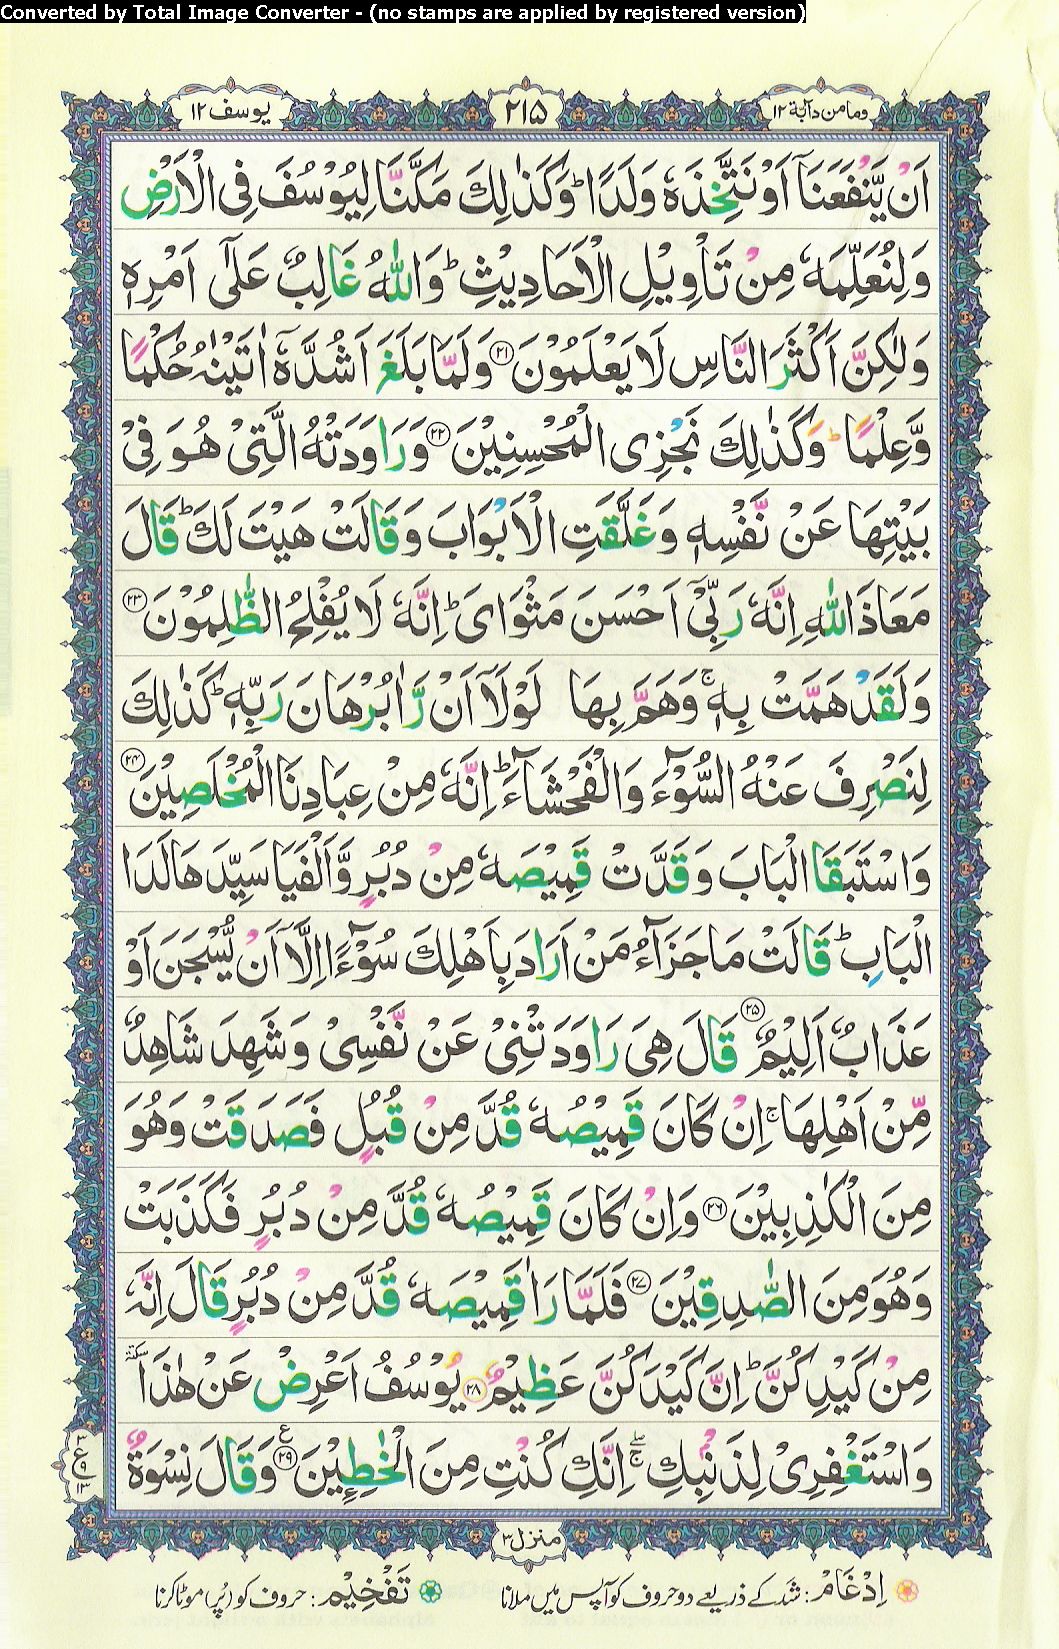 Converted by Total Image Converter - (no stamps are applied by registered version)
وما من دآبّة ١٢ ٢١٥ يوسف ١٢
اَنْ يَّنْفَعَنَاۤ اَوْ نَتَّخِذَهٗ وَلَدًاؕ وَكَذٰلِكَ مَكَّنَّا لِيُوْسُفَ فِى الْاَرْضِ
وَلِنُعَلِّمَهٗ مِنْ تَاْوِيْلِ الْاَحَادِيْثِؕ وَاللّٰهُ غَالِبٌ عَلٰٓى اَمْرِهٖ
وَلٰكِنَّ اَكْثَرَ النَّاسِ لَا يَعْلَمُوْنَ ﴿٢١﴾ وَلَمَّا بَلَغَ اَشُدَّهٗۤ اٰتَيْنٰهُ حُكْمًا
وَّعِلْمًاؕ وَكَذٰلِكَ نَجْزِى الْمُحْسِنِيْنَ ﴿٢٢﴾ وَرَاوَدَتْهُ الَّتِىْ هُوَ فِىْ
بَيْتِهَا عَنْ نَّفْسِهٖ وَغَلَّقَتِ الْاَبْوَابَ وَقَالَتْ هَيْتَ لَكَؕ قَالَ
مَعَاذَ اللّٰهِ اِنَّهٗ رَبِّىْۤ اَحْسَنَ مَثْوَاىَؕ اِنَّهٗ لَا يُفْلِحُ الظّٰلِمُوْنَ ﴿٢٣﴾
وَلَقَدْ هَمَّتْ بِهٖۚ وَهَمَّ بِهَا لَوْلَاۤ اَنْ رَّاٰ بُرْهَانَ رَبِّهٖؕ كَذٰلِكَ
لِنَصْرِفَ عَنْهُ السُّوْٓءَ وَالْفَحْشَآءَؕ اِنَّهٗ مِنْ عِبَادِنَا الْمُخْلَصِيْنَ ﴿٢٤﴾
وَاسْتَبَقَا الْبَابَ وَقَدَّتْ قَمِيْصَهٗ مِنْ دُبُرٍ وَّاَلْفَيَا سَيِّدَهَا لَدَا
الْبَابِؕ قَالَتْ مَا جَزَآءُ مَنْ اَرَادَ بِاَهْلِكَ سُوْٓءًا اِلَّاۤ اَنْ يُّسْجَنَ اَوْ
عَذَابٌ اَلِيْمٌ ﴿٢٥﴾ قَالَ هِىَ رَاوَدَتْنِىْ عَنْ نَّفْسِىْ وَشَهِدَ شَاهِدٌ
مِّنْ اَهْلِهَاۚ اِنْ كَانَ قَمِيْصُهٗ قُدَّ مِنْ قُبُلٍ فَصَدَقَتْ وَهُوَ
مِنَ الْكٰذِبِيْنَ ﴿٢٦﴾ وَاِنْ كَانَ قَمِيْصُهٗ قُدَّ مِنْ دُبُرٍ فَكَذَبَتْ
وَهُوَ مِنَ الصّٰدِقِيْنَ ﴿٢٧﴾ فَلَمَّا رَاٰ قَمِيْصَهٗ قُدَّ مِنْ دُبُرٍ قَالَ اِنَّهٗ
مِنْ كَيْدِكُنَّؕ اِنَّ كَيْدَكُنَّ عَظِيْمٌ ﴿٢٨﴾ يُوْسُفُ اَعْرِضْ عَنْ هٰذَاٚ سكتة
وَاسْتَغْفِرِىْ لِذَنْۢبِكِۖۚ اِنَّكِ كُنْتِ مِنَ الْخٰطِـِٕيْنَ ﴿٢٩﴾ ع وَقَالَ نِسْوَةٌ
ع ٩ ١٣
منزل ٣
اِدْغَام: شد کے ذریعے دو حروف کو آپس میں ملانا تَفْخِيْم: حروف کو (پُر) موٹا کرنا